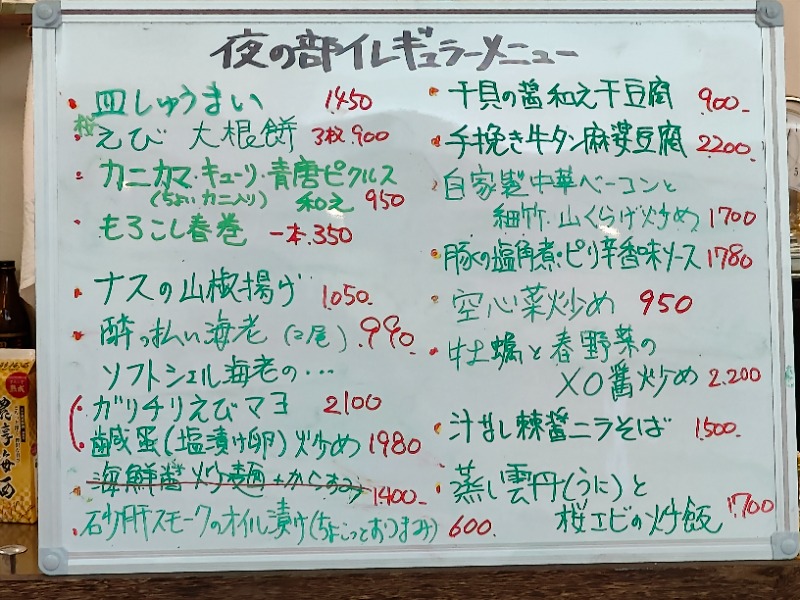 夜の部イレギュラーメニュー
・皿しゅうまい 1450
・桜えび 大根餅 3枚 900
・カニカマ・キューリ・青唐ピクルス
(ちょいカニ入り) 和え 950
・もろこし春巻 一本 350
・ナスの山椒揚げ 1050.
・酔っ払い海老 (2尾) 990.
ソフトシェル海老の・・・
・ガリチリえびマヨ 2100
・鹹蛋(塩漬け卵)炒め 1980
・海鮮醤炒麺+からすみ 1400-
・石少肝スモークのオイル漬け(ちょこっとおつまみ) 600.
・干貝の醤和え干豆腐 900-
・手挽き牛タン麻婆豆腐 2200.
・自家製中華ベーコンと
細竹・山くらげ炒め 1700
・豚の塩角煮・ピリ辛香味ソース 1780
・空心菜炒め 950
・牡蠣と春野菜の
XO醤炒め 2.200
・汁なし辣醤ニラそば 1500.
・蒸し雲丹(うに)と
桜エビの炒飯 1700